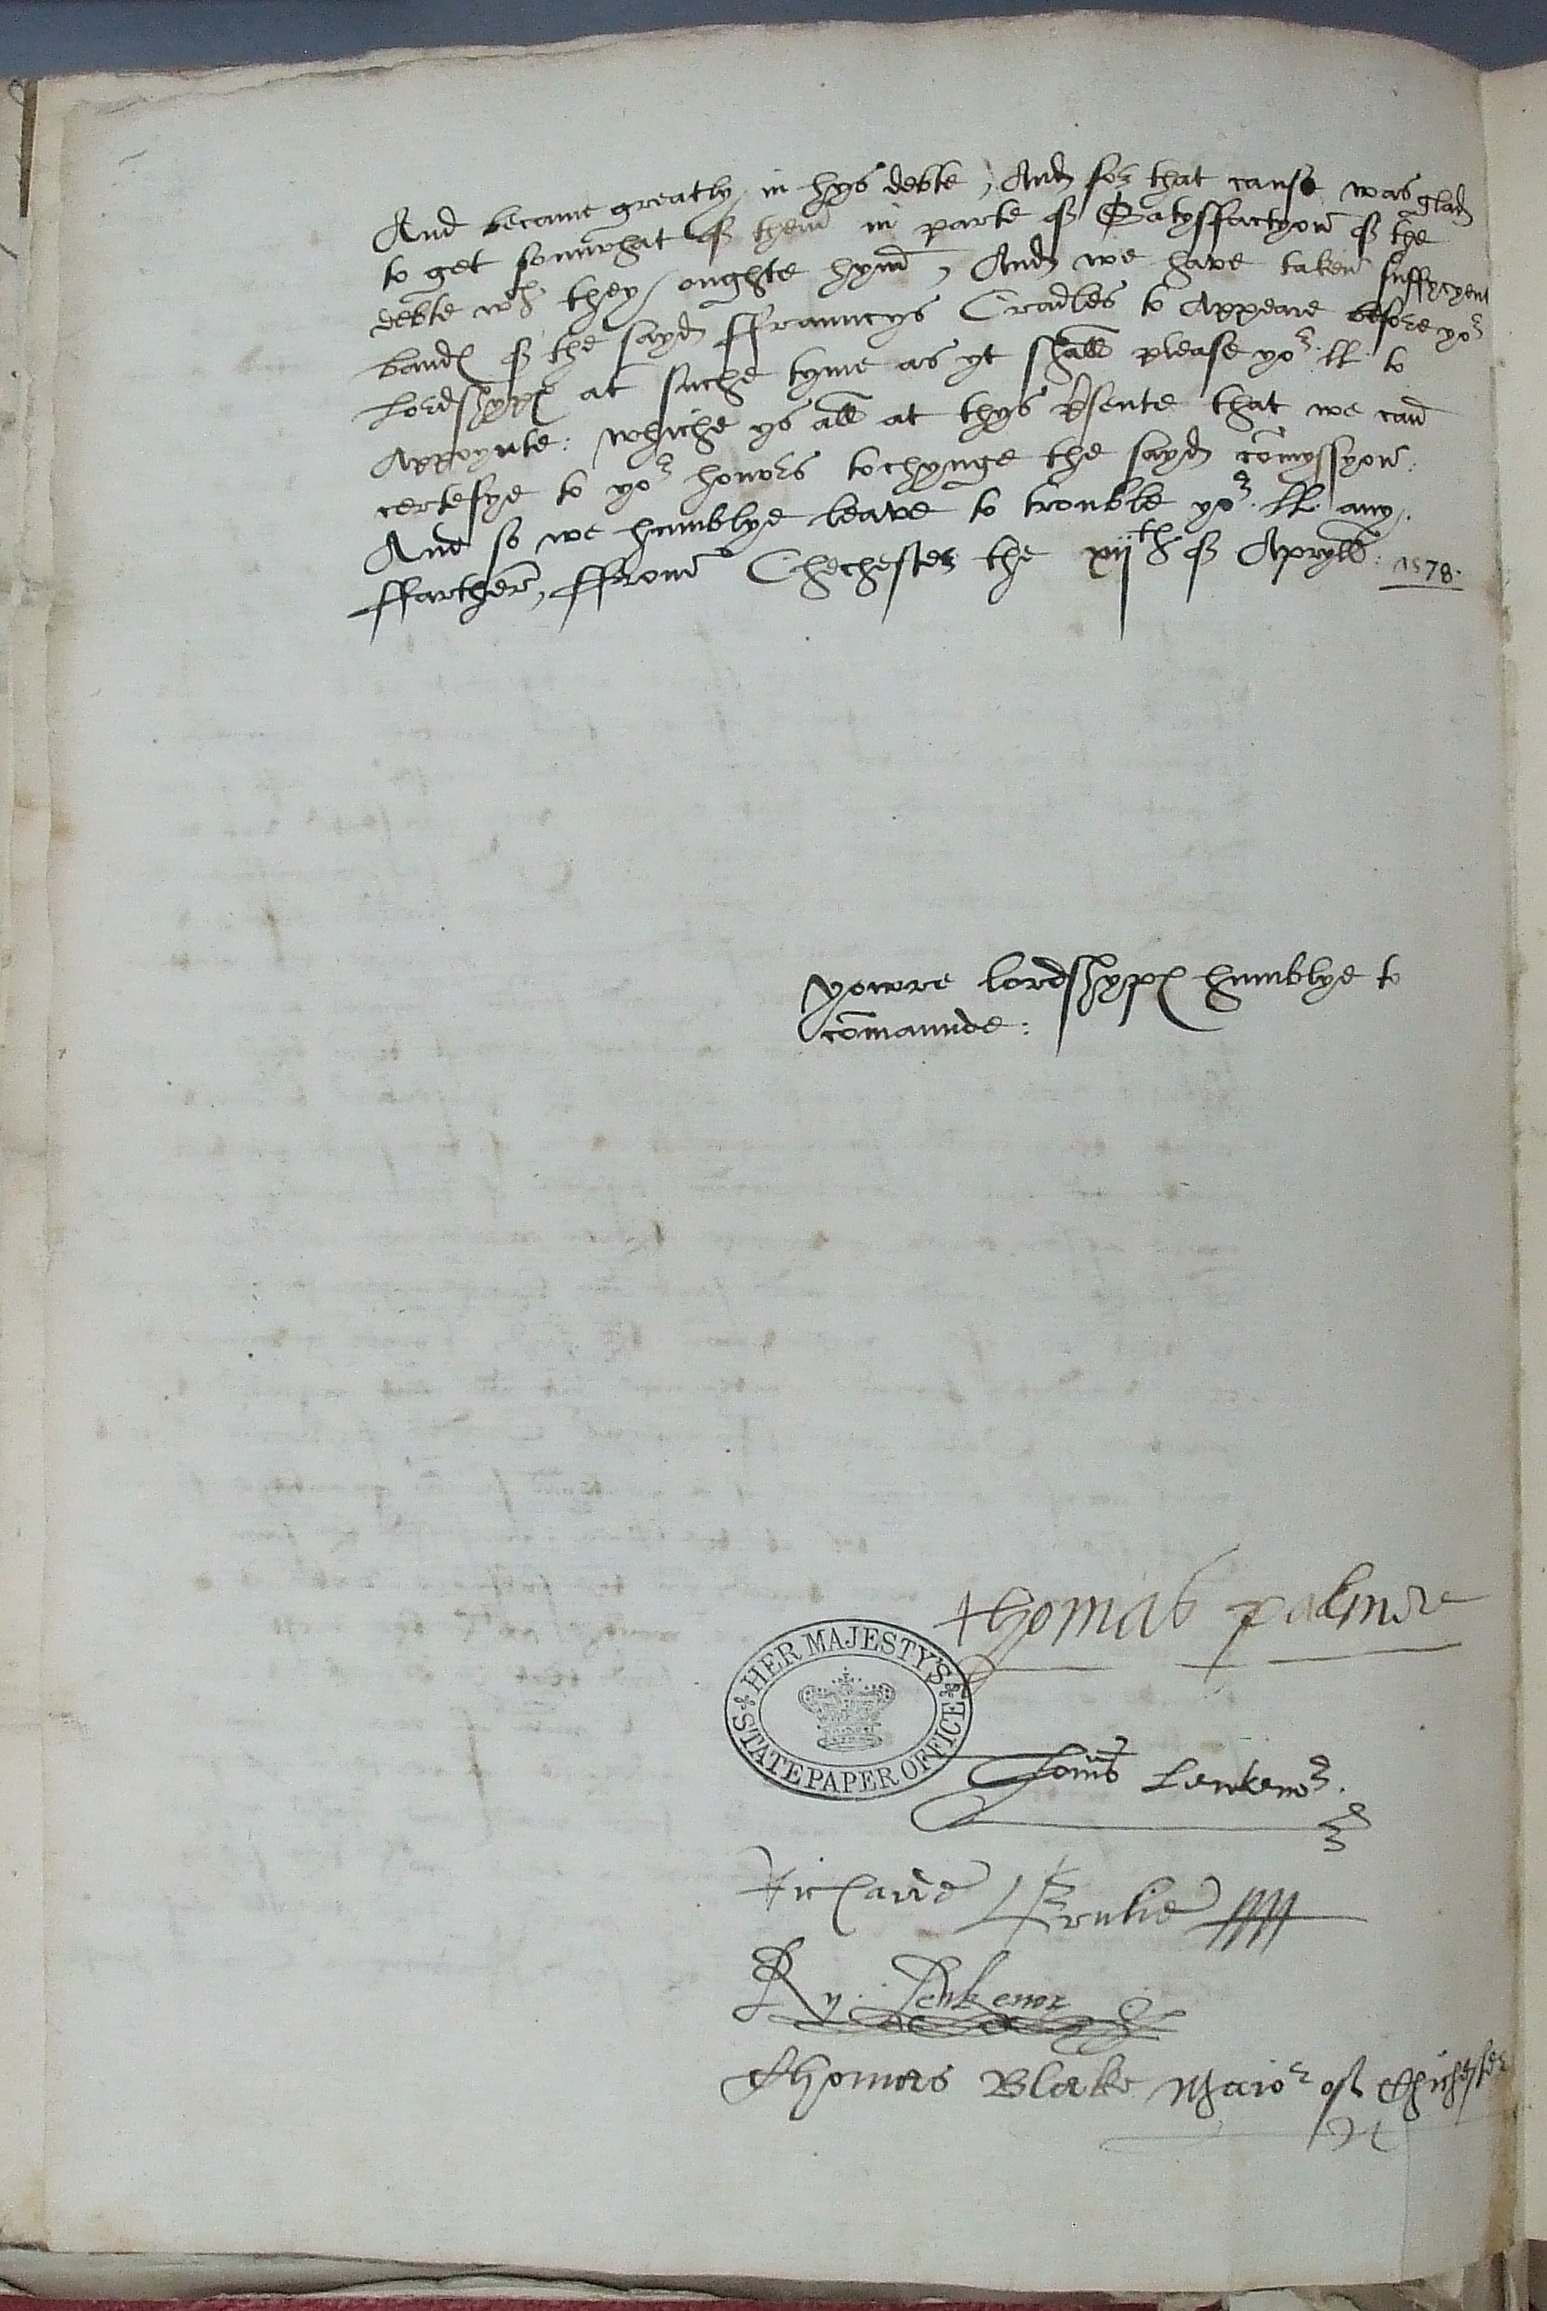 And became greatly in hys debte, And for that cause was glad
to get somwhat of them in parte of Satysffactyon of the
debte wch they oughte hym, And we have taken suffycyent
bandes of the sayd ffrauncys Cradles to Appeare before yor
Lordshypes at suche tyme as yt shall please yor ll to
Appoynte: whiche ys all at thys psente that we can
certefye to yor honors tochynge the sayd comyssyon.
And so we humblye leave to trouble yor ll any
ffarther, ffrom Chechester the xijth of Apryll: 1578.
yowre lordshypes humblye to
comaunde:
thomas palmere
HER MAJESTY'S STATE PAPER OFFICE
Thoms Lewkenor.
Richarde Ernlie
Ry: Lewkenor
Thomas Blake Maior of Chichester